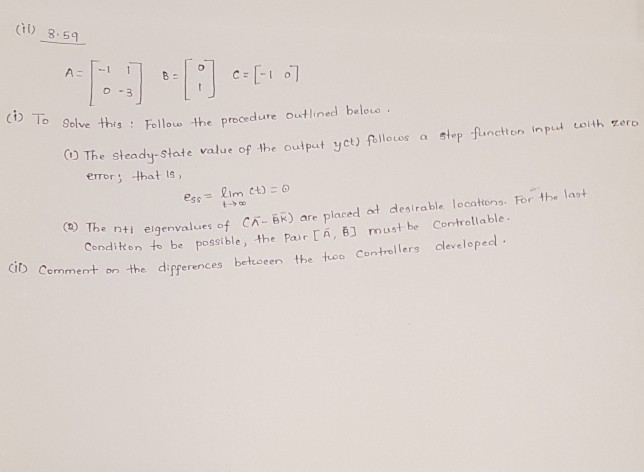 (ii) 8.59
A = [-1 1 0 -3] B = [0 1] C = [-1 0]
(i) To Solve this : Follow the procedure outlined below.
(1) The steady-state value of the output y(t) follows a step function input with zero
error; that is,
ess = lim t→∞ (t) = 0
(2) The n+1 eigenvalues of (Ā - B̄K̄) are placed at desirable locations. For the last
Condition to be possible, the Pair [Ā, B̄] must be Controllable.
(ii) Comment on the differences between the two Controllers developed.